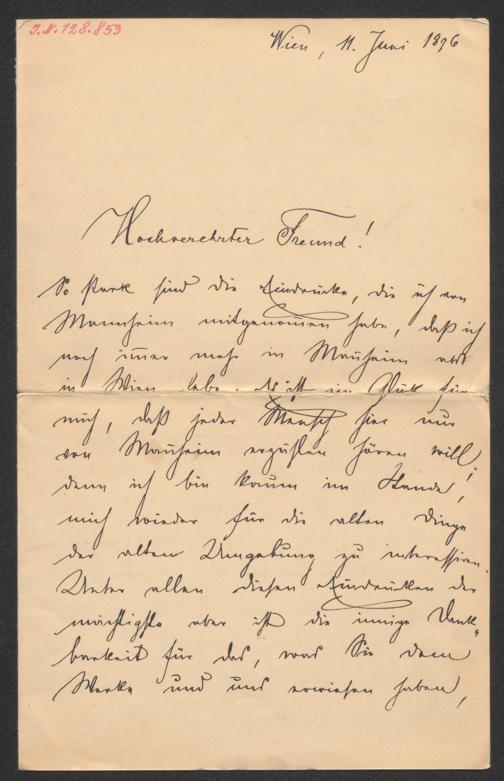 I.N. 128.853
Wien, 11. Juni 1896
Hochverehrter Freund!
So stark sind die Eindrücke, die ich von
Mannheim mitgenommen habe, daß ich
noch immer mehr in Mannheim als
in Wien lebe. Es ist ein Glück für
mich, daß jeder Mensch hier nur
von Mannheim erzählen hören will,
denn ich bin kaum im Stande,
mich wieder für die alten Dinge
der alten Umgebung zu interessiren.
Unter allen diesen Eindrücken der
mächtigste aber ist die innige Dank-
barkeit für das, was Sie dem
Werke und uns erwiesen haben,